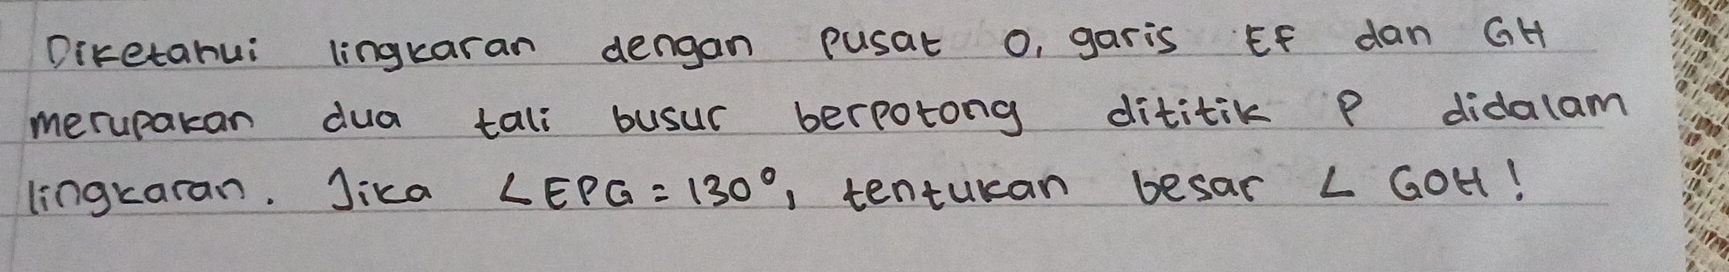 Diketahui lingkaran dengan pusat O, garis EF dan GH
merupakan dua tali busur berpotong dititik P didalam
lingkaran. Jika ∠EPG = 130°, tentukan besar ∠ GOH!